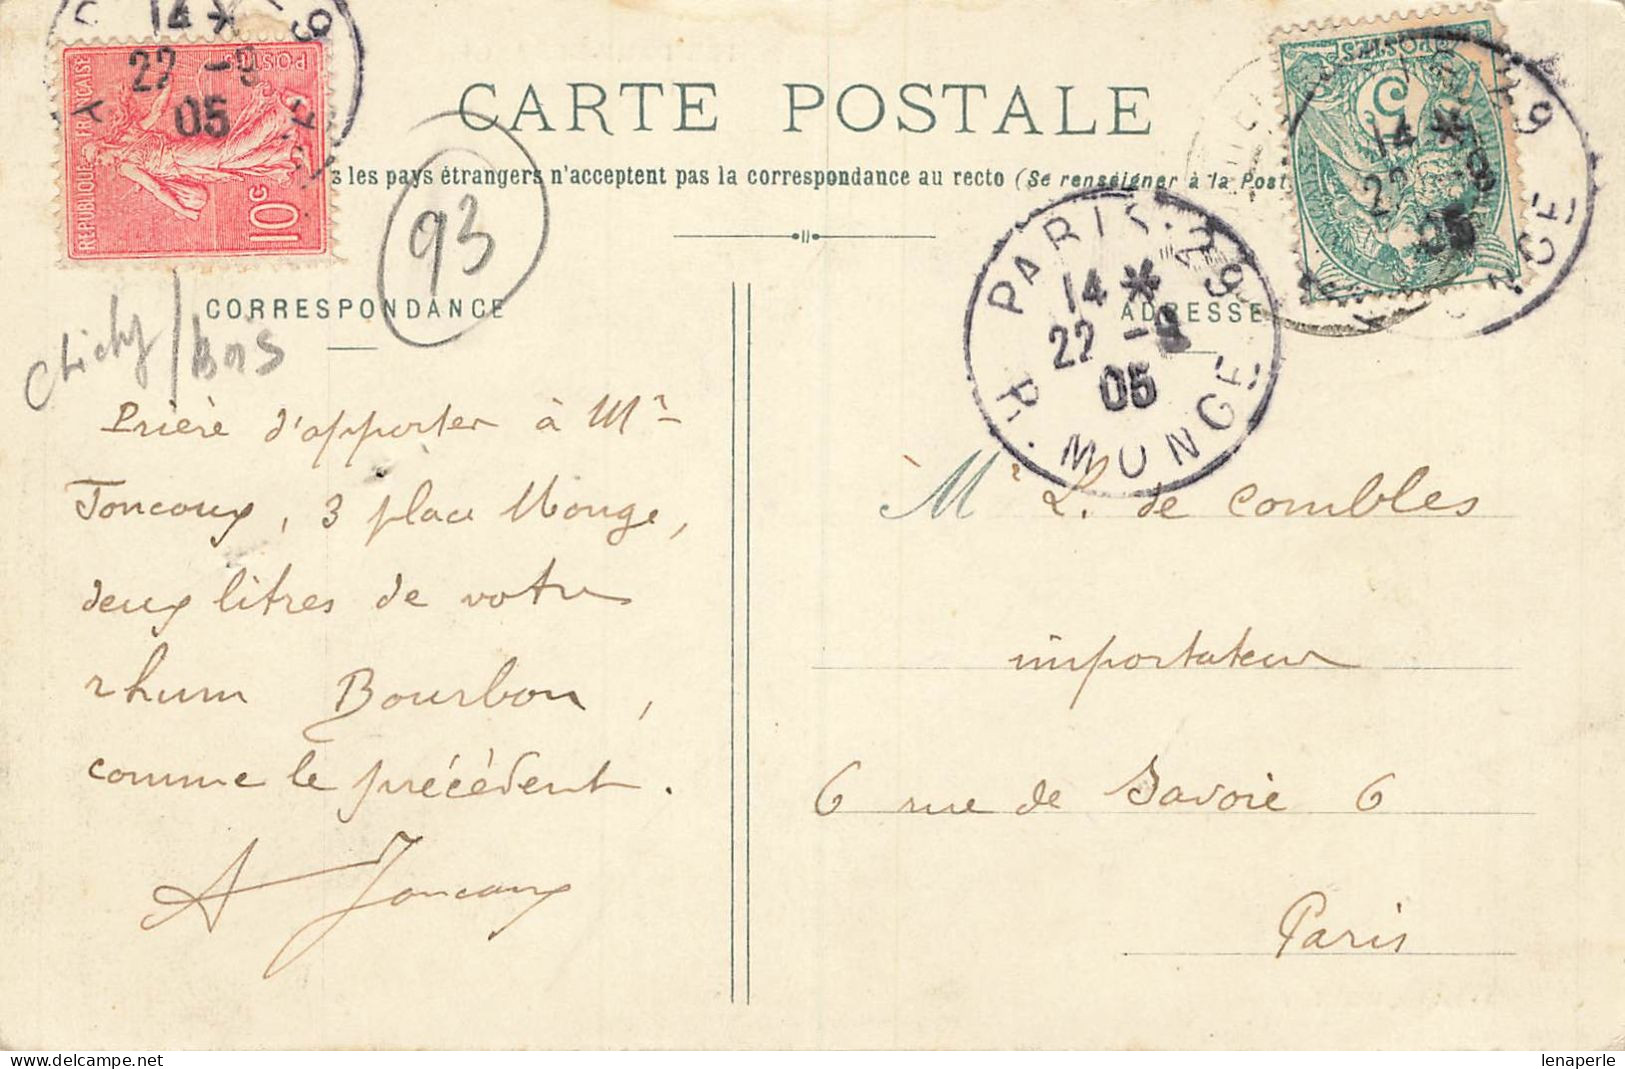 CARTE POSTALE
s les pays étrangers n'acceptent pas la correspondance au recto (Se renseigner à la Post
REPUBLIQUE FRANÇAISE
POSTES
10c
14 *
22 -9
05
93
Clichy / Bois
CORRESPONDANCE
Prière d'apporter à Mr
Joncoux, 3 place Monge,
deux litres de votre
rhum Bourbon,
comme le précédent.
A Joncoux
PARIS. 29
14 *
22 -9
05
R. MONGE
POSTES
5
14 *
22
05
ADRESSE
à Mr L. de Combles
importateur
6 rue de Savoie 6
Paris
lenaperle